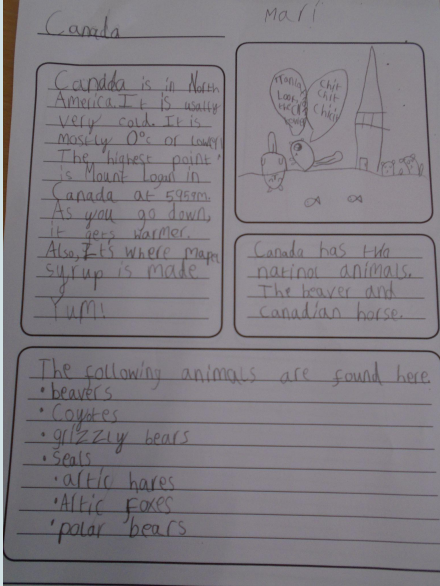 Canada
Mari
Candda is in North
America. It is usally
very cold. It is
mostly 0°c or lower.
The highest point
is Mount Logan in
Canada at 5959m.
As you go down,
it gets warmer.
Also, It's where mapel
syrup is made
Yum!
Look
Chit
Chit
Canada has two
natinol animals.
The beaver and
canadian horse.
The following animals are found here
• beavers
• Coyotes
• grizzly bears
• Seals
• artic hares
• Artic Foxes
• polar bears